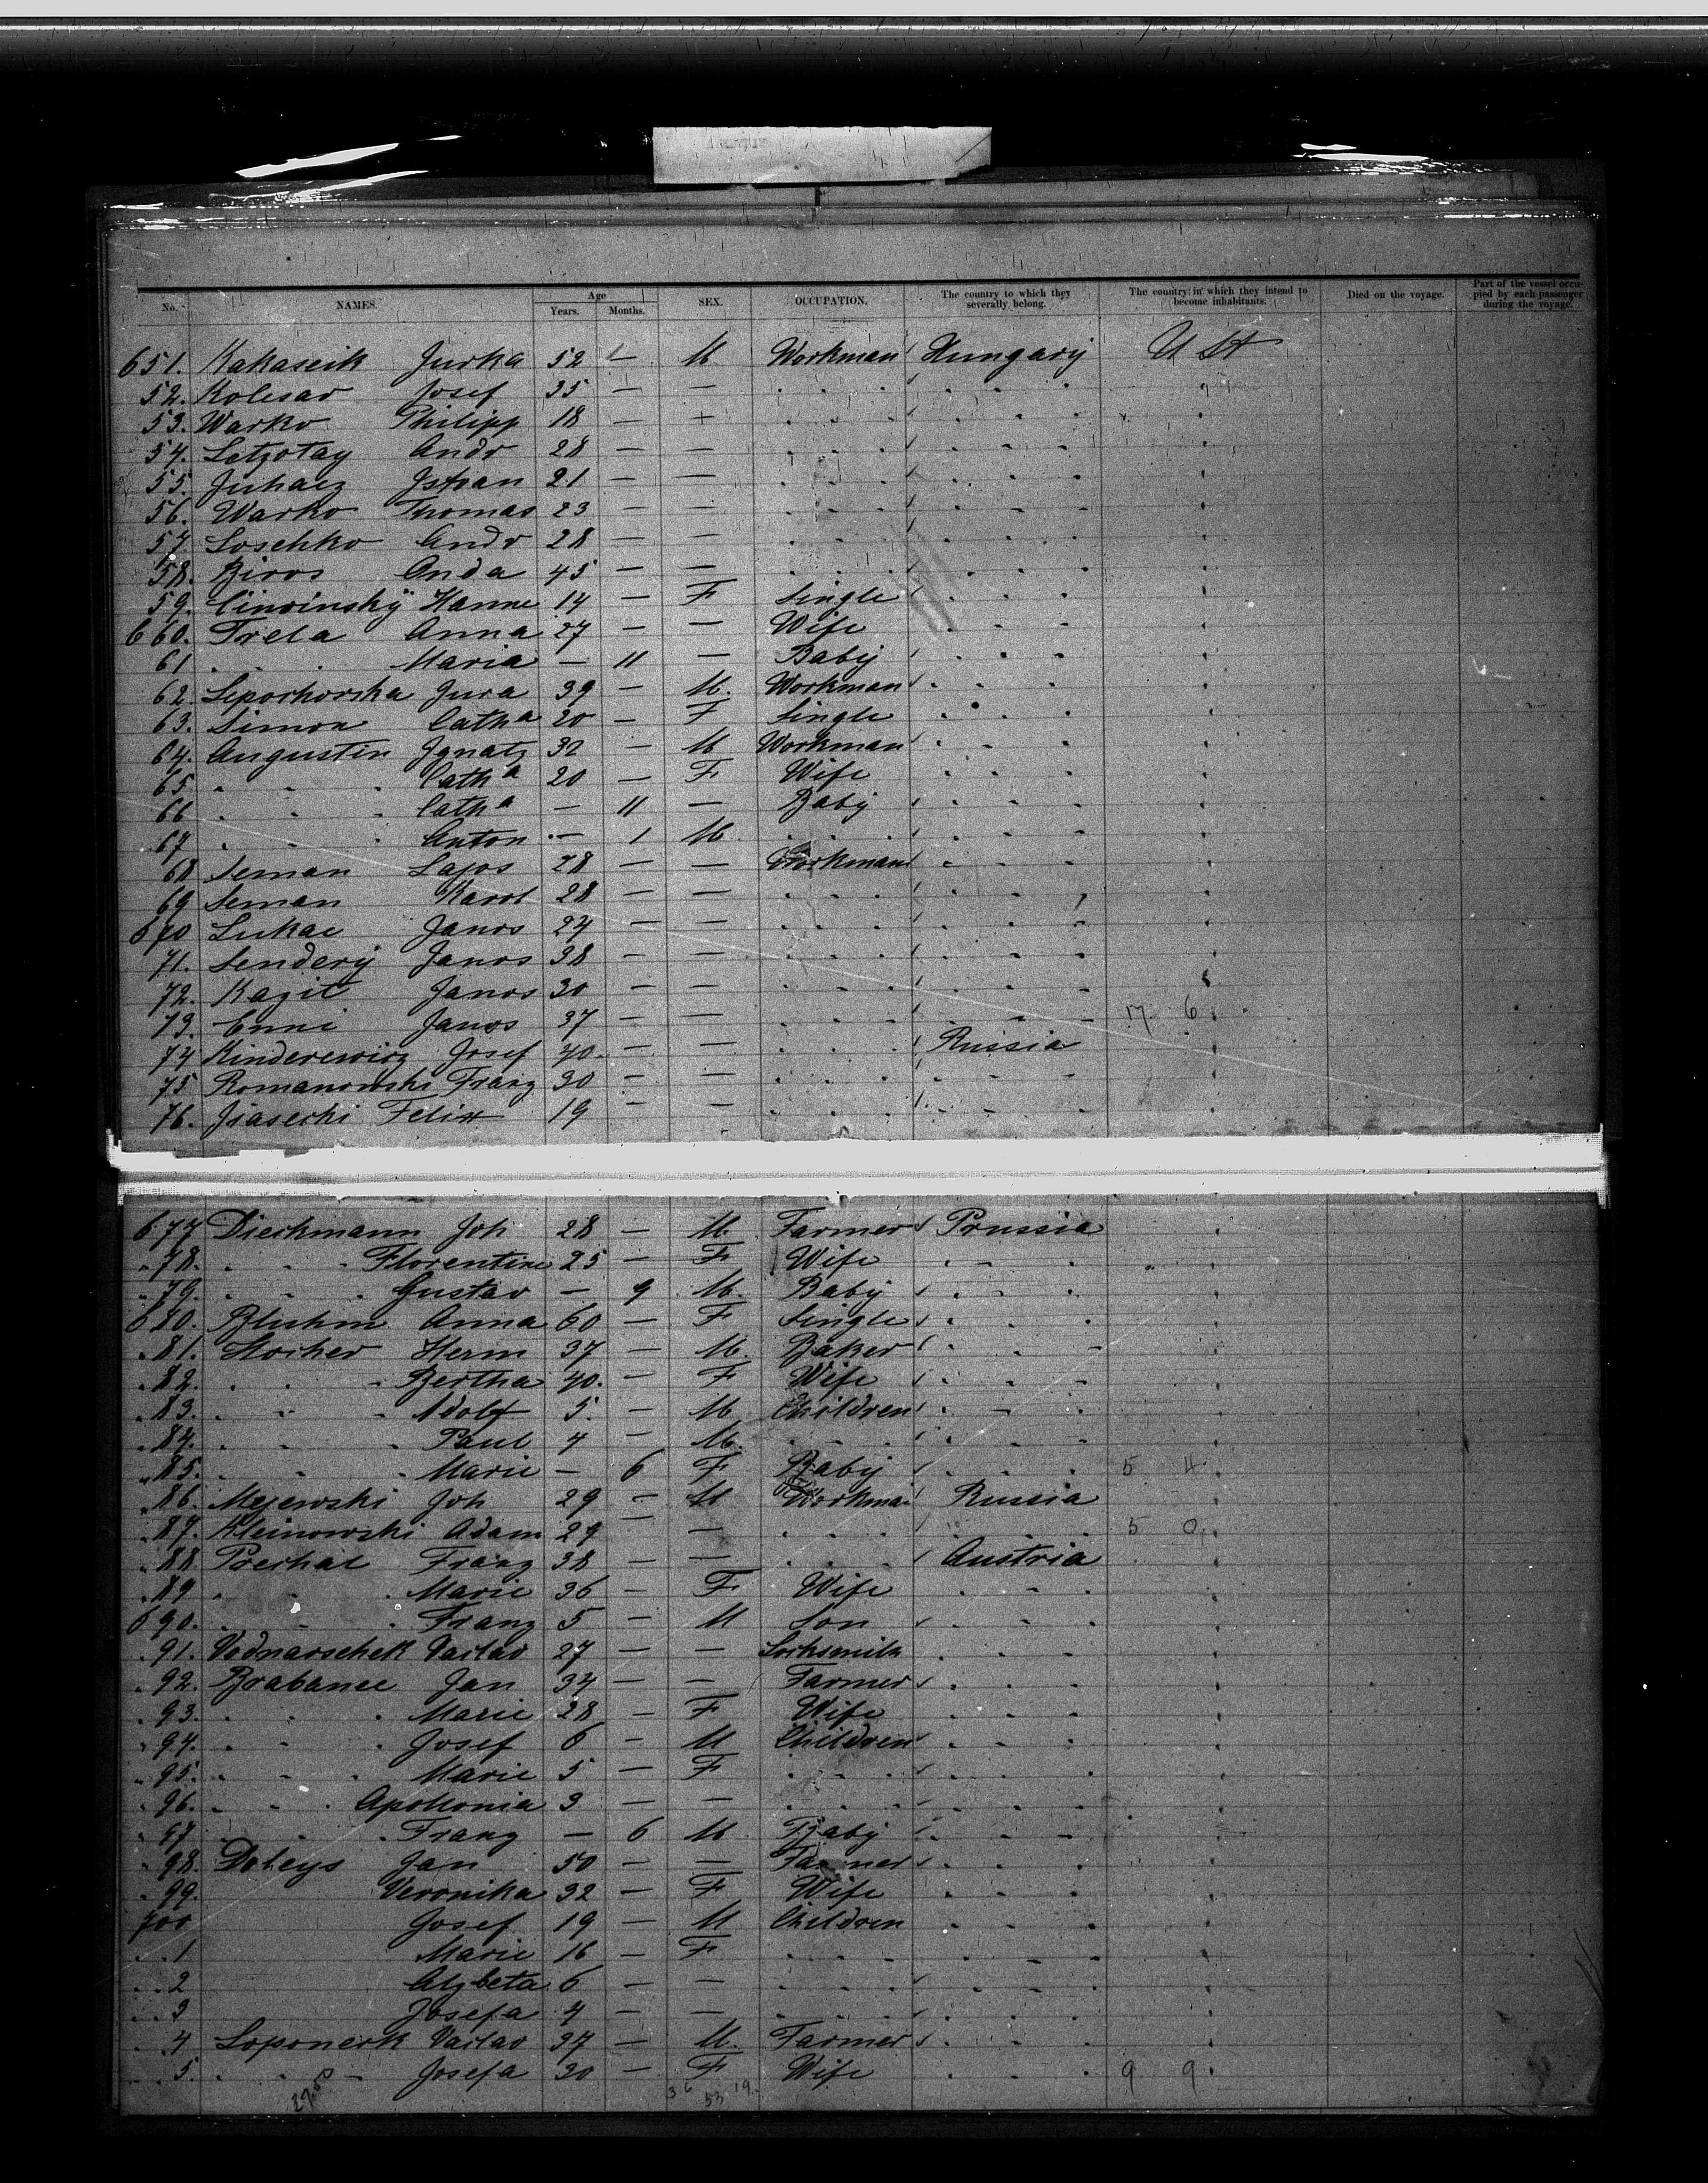 No. NAMES. Age Years. Months. SEX. OCCUPATION. The country to which they severally belong. The country in which they intend to become inhabitants. Died on the voyage. Part of the vessel occupied by each passenger during the voyage.
651. Kakascik Jurka 52 — M Workman Hungary U St
52. Kolesar Josef 35 — —
53. Warko Philipp 18 — —
54. Letzotay Andr 28 — —
55. Juhasz Istvan 21 — —
56. Warko Thomas 23 — —
57. Loschko Andr 28 — —
58. Biros Anda 45 — —
59. Hanne 14 — F Single
660. Trela Anna 27 — — Wife
61 . . . Maria — 11 — Baby
62. Leporhovska Jura 39 — M. Workman
63. Simon Catha 20 — F Single
64. Augustin Ignatz 32 — M Workman
65 . . . Catha 20 — F Wife
66 . . . Catha — 11 — Baby
67 . . . Anton — 1 M . . . .
68 Seman Lajos 28 — — Workman
69 Seman Karol 28 — —
670 Lukac Janos 24 — —
71. Sendery Janos 38 — —
72. Kazit Janos 30 — —
73. Enni Janos 37 — — 17 6
74 Kinderewicz Josef 40. — — Russia
75 Romanowski Franz 30 — —
76. Jsasecki Felix 19 — —
677 Dieckmann Joh 28 — M. Farmer Prussia
78. . . . Florentine 25 — F Wife
79. . . . Gustav — 9 M. Baby
680. Bluhm Anna 60 — F Single
81. Stocker Herm 37 — M. Baker
82. . . . Bertha 40. — F Wife
83. . . . Adolf 5. — M Children
84. . . . Paul 4 — M.
85. . . . Marie — 6 F Baby 5 4
86. Mejewski Joh 29 — M Workman Russia
87. Kleinowski Adam 29 — — 5 0
88 Prechal Franz 38 — — Austria
89 . . . Marie 36 — F Wife
690. . . . Franz 5 — M Son
91. Vodnarschek Vaclav 27 — — Locksmith
92. Brabanec Jan 34 — — Farmer
93. . . . Marie 28 — F Wife
94. . . . Josef 6 — M Children
95. . . . Marie 5 — F
96. . . . Apollonia 3 — —
97 . . . Franz — 6 M Baby
98. Doleys Jan 50 — — Farmer
99. Veronika 32 — F Wife
700 Josef 19 — M Children
1 Marie 16 — F
2 Alzbeta 6 — —
3 Josefa 4 — —
4 Loponerk Vaclav 37 — M. Farmer
5. . . . Josefa 30 — F Wife 9 9
36 53 19